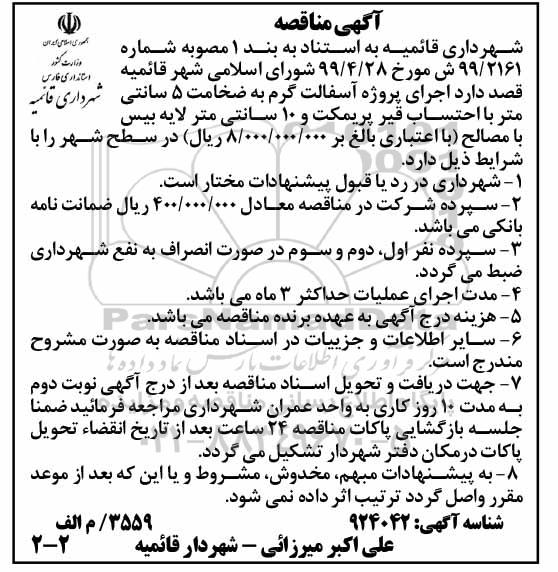 آگهی مناقصه
جمهوری اسلامی ایران
وزارت کشور
استانداری فارس
شهرداری قائمیه
شهرداری قائمیه به استناد به بند ۱ مصوبه شماره
۹۹/۲۱۶۱ ش مورخ ۹۹/۴/۲۸ شورای اسلامی شهر قائمیه
قصد دارد اجرای پروژه آسفالت گرم به ضخامت ۵ سانتی
متر با احتساب قیر پریمکت و ۱۰ سانتی متر لایه بیس
با مصالح (با اعتباری بالغ بر ۸/۰۰۰/۰۰۰/۰۰۰ ریال) در سطح شهر را با
شرایط ذیل دارد.
۱- شهرداری در رد یا قبول پیشنهادات مختار است.
۲- سپرده شرکت در مناقصه معادل ۴۰۰/۰۰۰/۰۰۰ ریال ضمانت نامه
بانکی می باشد.
۳- سپرده نفر اول، دوم و سوم در صورت انصراف به نفع شهرداری
ضبط می گردد.
۴- مدت اجرای عملیات حداکثر ۳ ماه می باشد.
۵- هزینه درج آگهی به عهده برنده مناقصه می باشد.
۶- سایر اطلاعات و جزییات در اسناد مناقصه به صورت مشروح
مندرج است.
۷- جهت دریافت و تحویل اسناد مناقصه بعد از درج آگهی نوبت دوم
به مدت ۱۰ روز کاری به واحد عمران شهرداری مراجعه فرمائید ضمنا
جلسه بازگشایی پاکات مناقصه ۲۴ ساعت بعد از تاریخ انقضاء تحویل
پاکات درمکان دفتر شهردار تشکیل می گردد.
۸- به پیشنهادات مبهم، مخدوش، مشروط و یا این که بعد از موعد
مقرر واصل گردد ترتیب اثر داده نمی شود.
شناسه آگهی: ۹۲۴۰۴۲
۳۵۵۹/ م الف
علی اکبر میرزائی - شهردار قائمیه
۲-۲